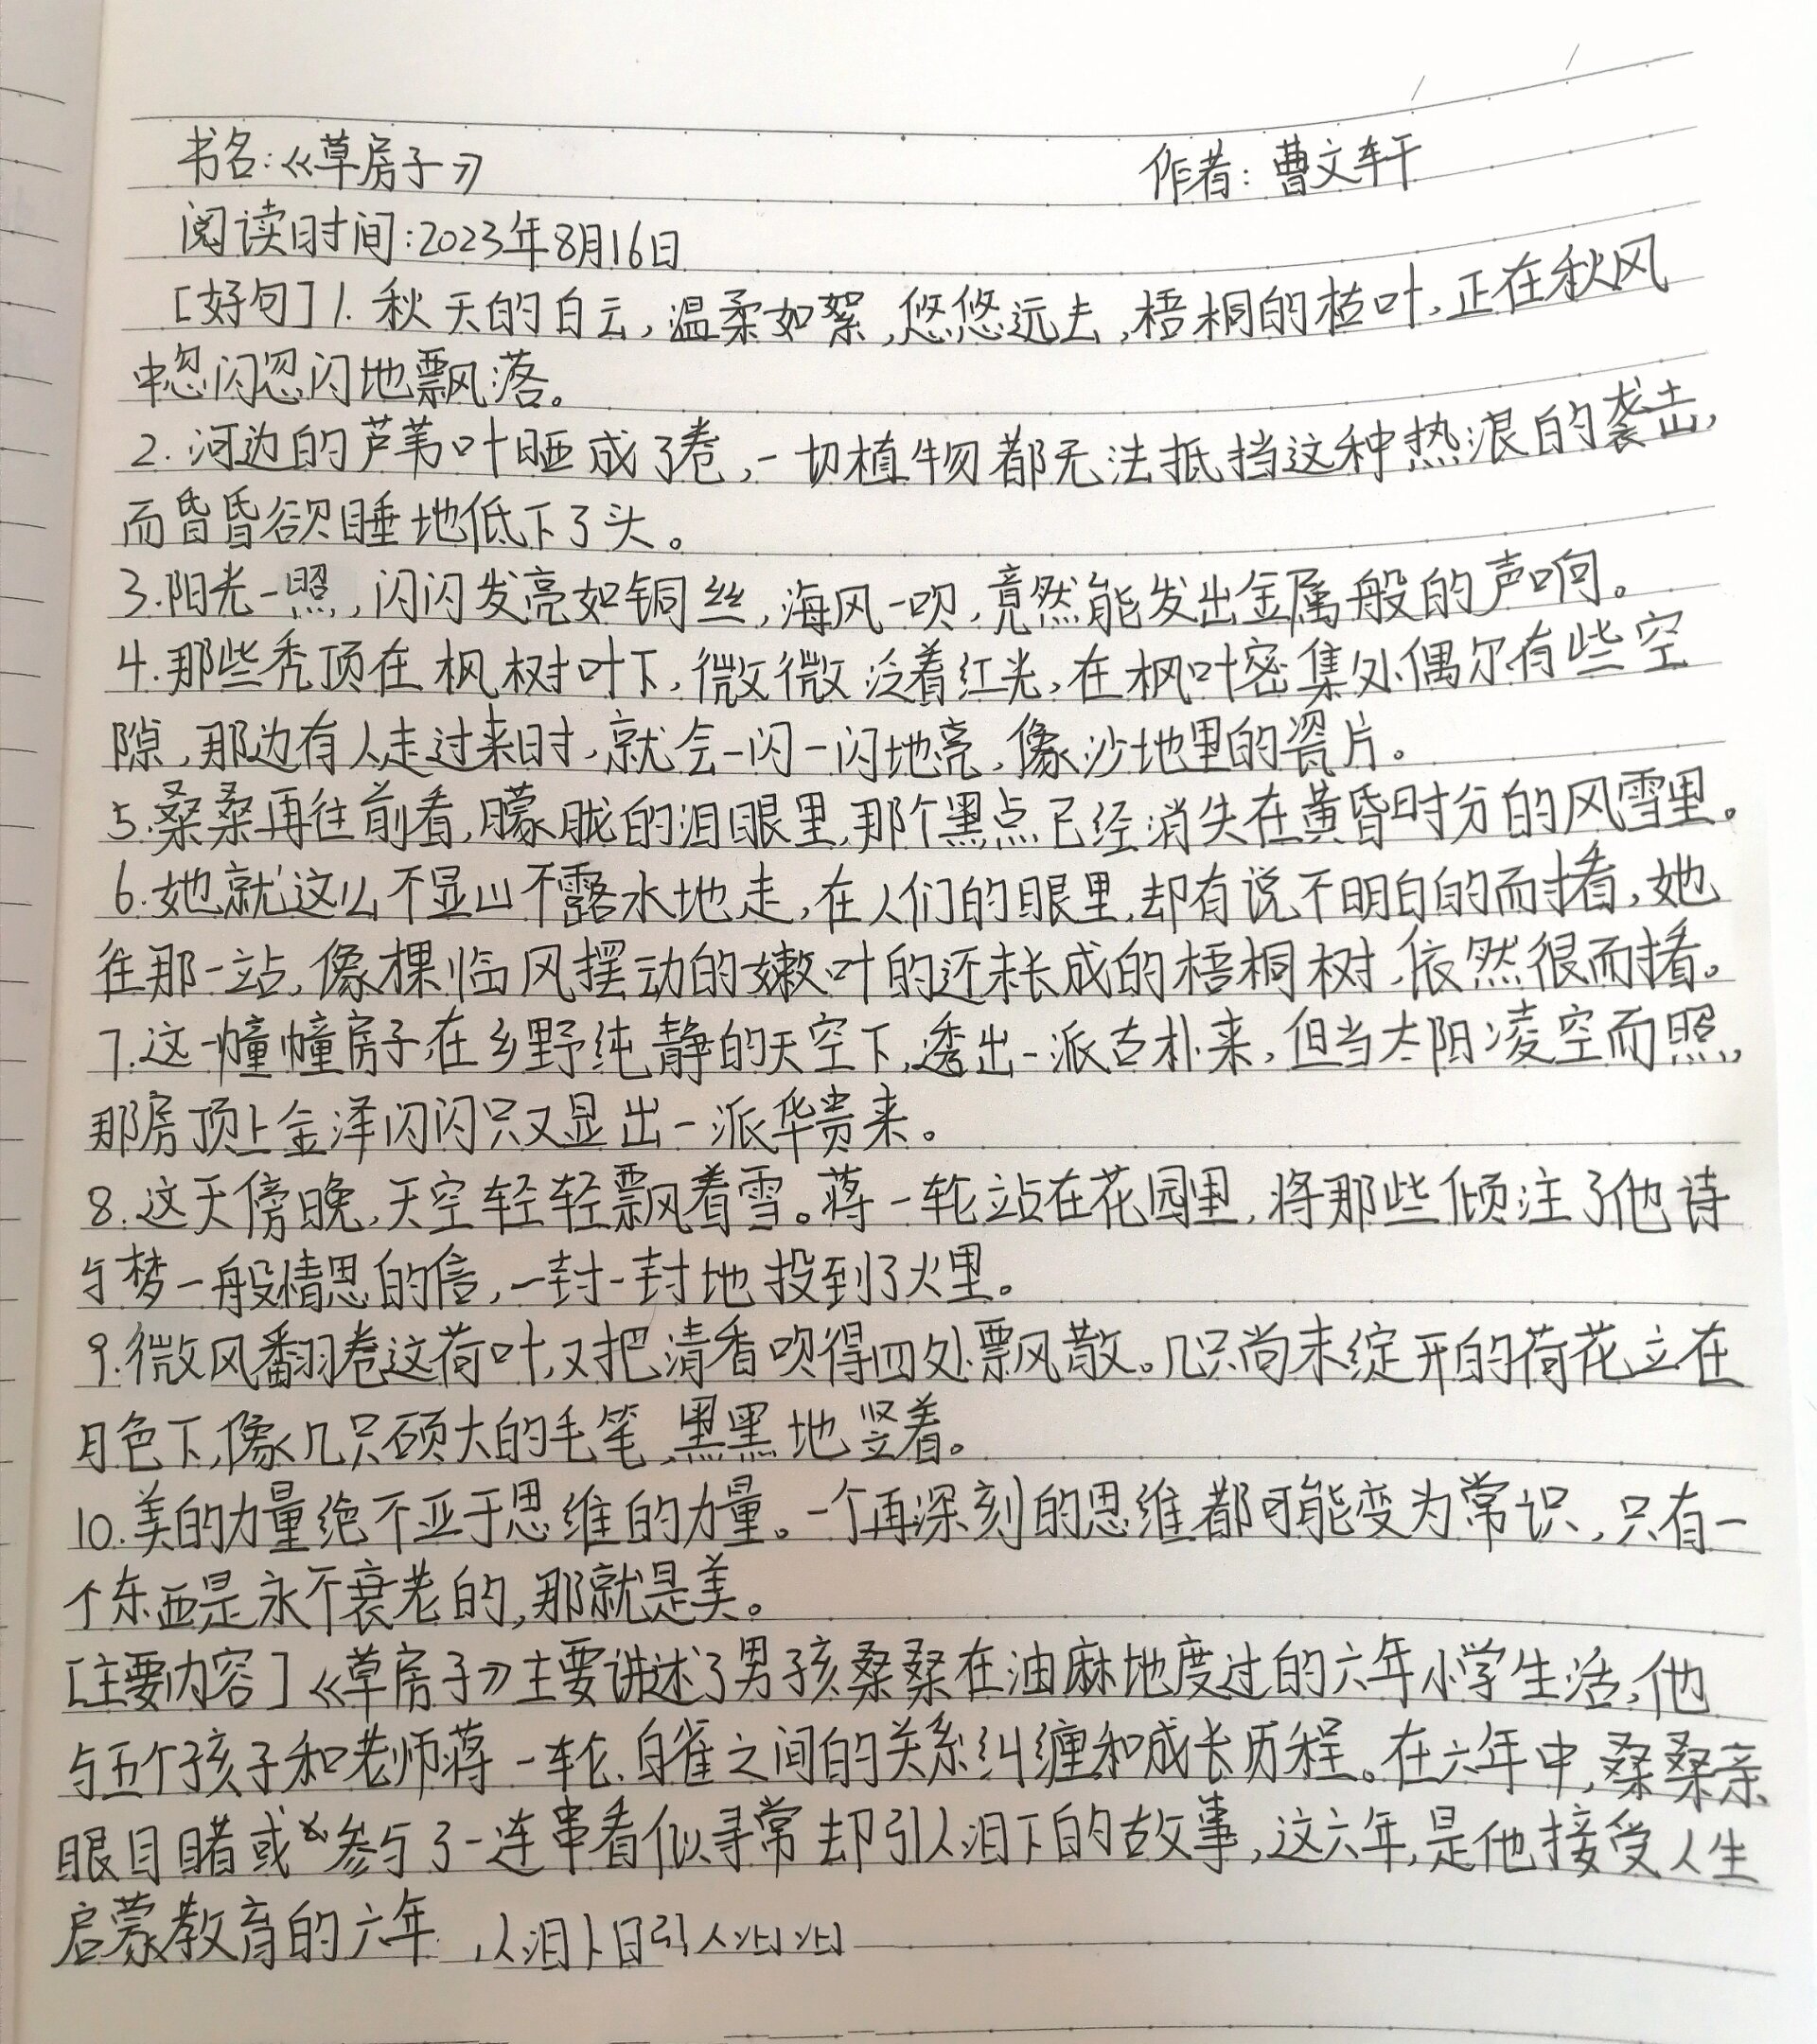 书名:《草房子》 作者:曹文轩
阅读时间:2023年8月16日
[好句]1.秋天的白云,温柔如絮,悠悠远去,梧桐的枝叶,正在秋风
中忽闪忽闪地飘落。
2.河边的芦苇叶晒成了卷,一切植物都无法抵挡这种热浪的袭击,
而昏昏欲睡地低下了头。
3.阳光一照,闪闪发亮如铜丝,海风一吹,竟然能发出金属般的声响。
4.那些秃顶在枫树叶下,微微泛着红光,在枫叶密集处偶尔有些空
隙,那边有人走过来时,就会一闪一闪地亮,像沙地里的瓷片。
5.桑桑再往前看,朦胧的泪眼里,那个黑点已经消失在黄昏时分的风雪里。
6.她就这么不显山不露水地走,在人们的眼里,却有说不明白的耐看,她
往那一站,像棵临风摆动的嫩叶的还未长成的梧桐树,依然很耐看。
7.这一幢幢房子在乡野纯静的天空下,透出一派古朴来,但当太阳凌空而照,
那房顶上金泽闪闪只又显出一派华贵来。
8.这天傍晚,天空轻轻飘着雪。蒋一轮站在花园里,将那些倾注了他诗
与梦一般情思的信,一封一封地投到了火里。
9.微风翻卷这荷叶,又把清香吹得四处飘散。几只尚未绽开的荷花立在
月色下,像几只硕大的毛笔,黑黑地竖着。
10.美的力量绝不亚于思维的力量。一个再深刻的思维都可能变为常识,只有一
个东西是永不衰老的,那就是美。
[主要内容]《草房子》主要讲述了男孩桑桑在油麻地度过的六年小学生活,他
与五个孩子和老师蒋一轮、白雀之间的关系纠缠和成长历程。在六年中,桑桑亲
眼目睹或参与了一连串看似寻常却引人泪下的故事,这六年,是他接受人生
启蒙教育的六年